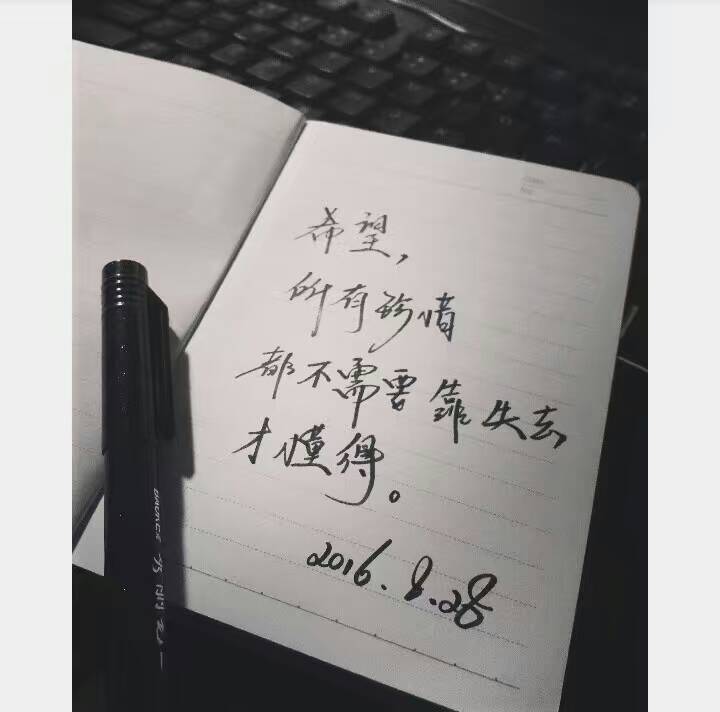 希望，
所有珍惜
都不需要靠失去
才懂得。
2016.8.28